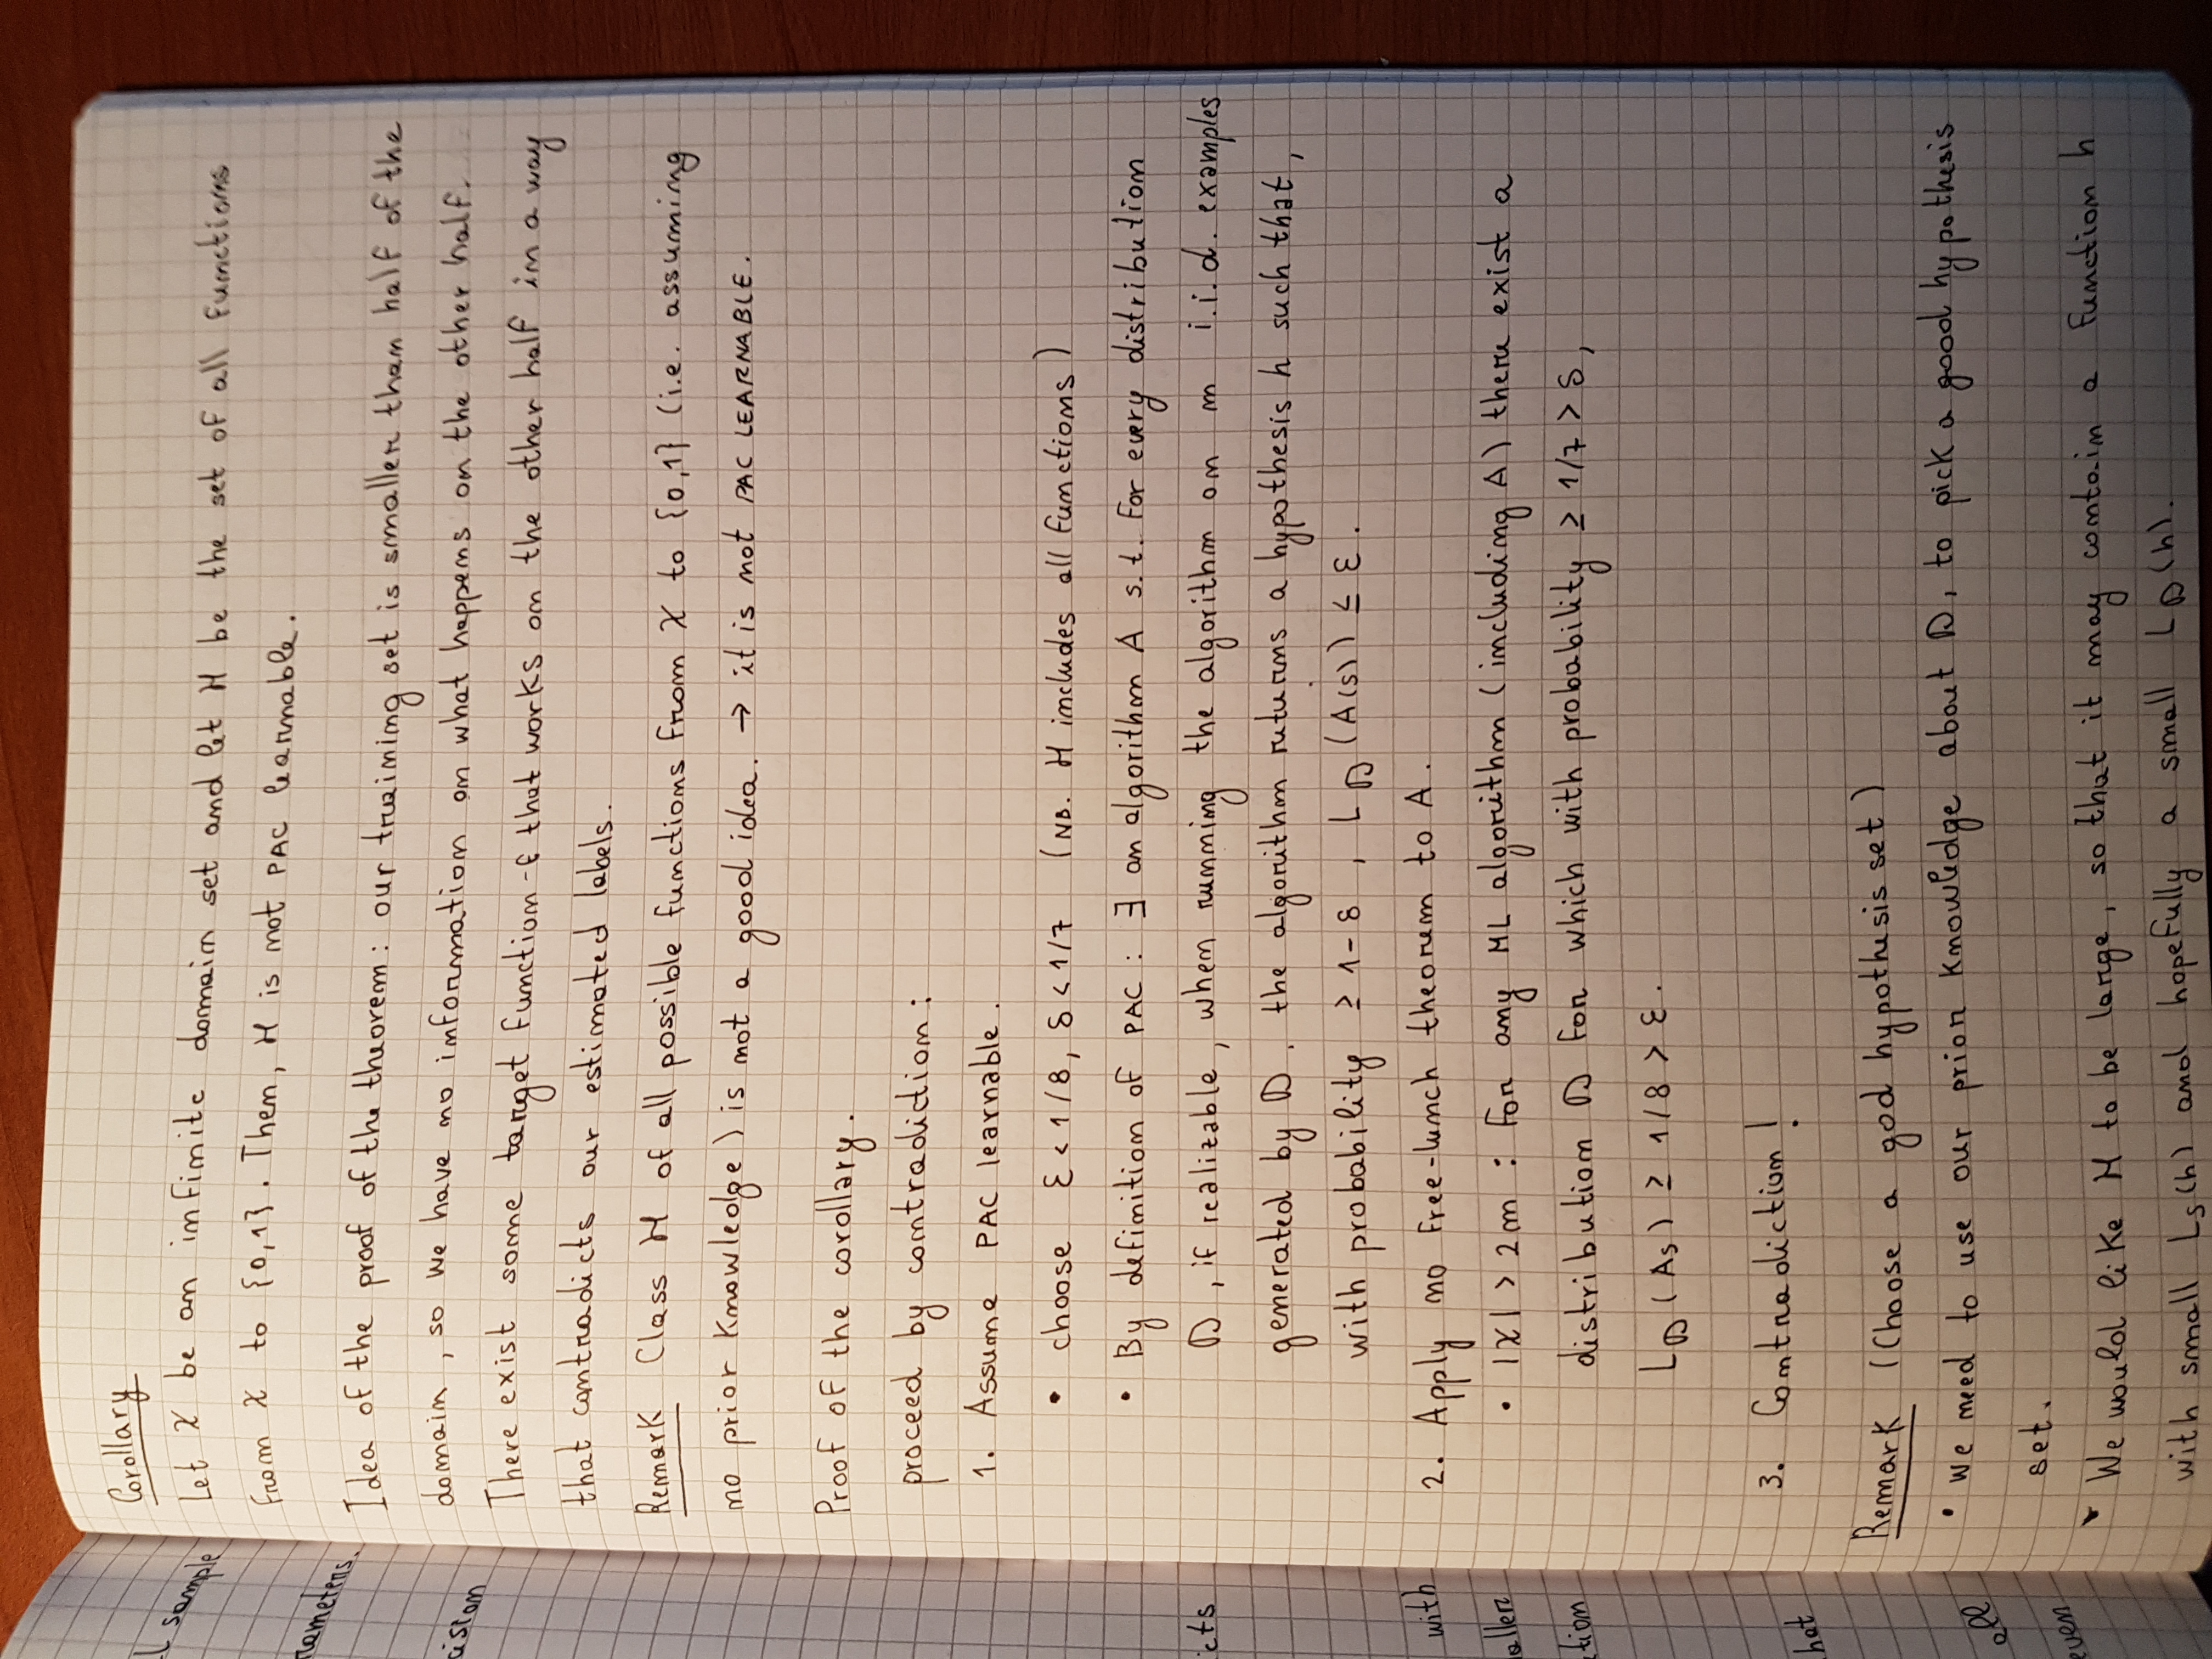 Corollary
Let X be an infinite domain set and let H be the set of all functions
from X to {0,1}. Then, H is not PAC learnable.
Idea of the proof of the theorem: our training set is smaller than half of the
domain, so we have no information on what happens on the other half.
There exist some target function f that works on the other half in a way
that contradicts our estimated labels.
Remark Class H of all possible functions from X to {0,1} (i.e. assuming
no prior knowledge) is not a good idea. → it is not PAC LEARNABLE.
Proof of the corollary.
proceed by contradiction:
1. Assume PAC learnable.
• choose ε < 1/8, δ < 1/7 (NB. H includes all functions)
• By definition of PAC: ∃ an algorithm A s.t. for every distribution
D, if realizable, when running the algorithm on m i.i.d. examples
generated by D, the algorithm ruturns a hypothesis h such that,
with probability ≥ 1-δ, L_D (A(s)) ≤ ε.
2. Apply no free-lunch theorem to A.
• |X| > 2m: for any ML algorithm (including A) there exist a
distribution D for which with probability ≥ 1/7 > δ,
L_D (A_s) ≥ 1/8 > ε.
3. Contradiction!
Remark (Choose a god hypothesis set)
• we need to use our prior knowledge about D, to pick a good hypothesis
set.
• We would like H to be large, so that it may contain a function h
with small L_S(h) and hopefully a small L_D(h).
l sample
rameters.
cision
icts
with
aller
tion
hat
all
even